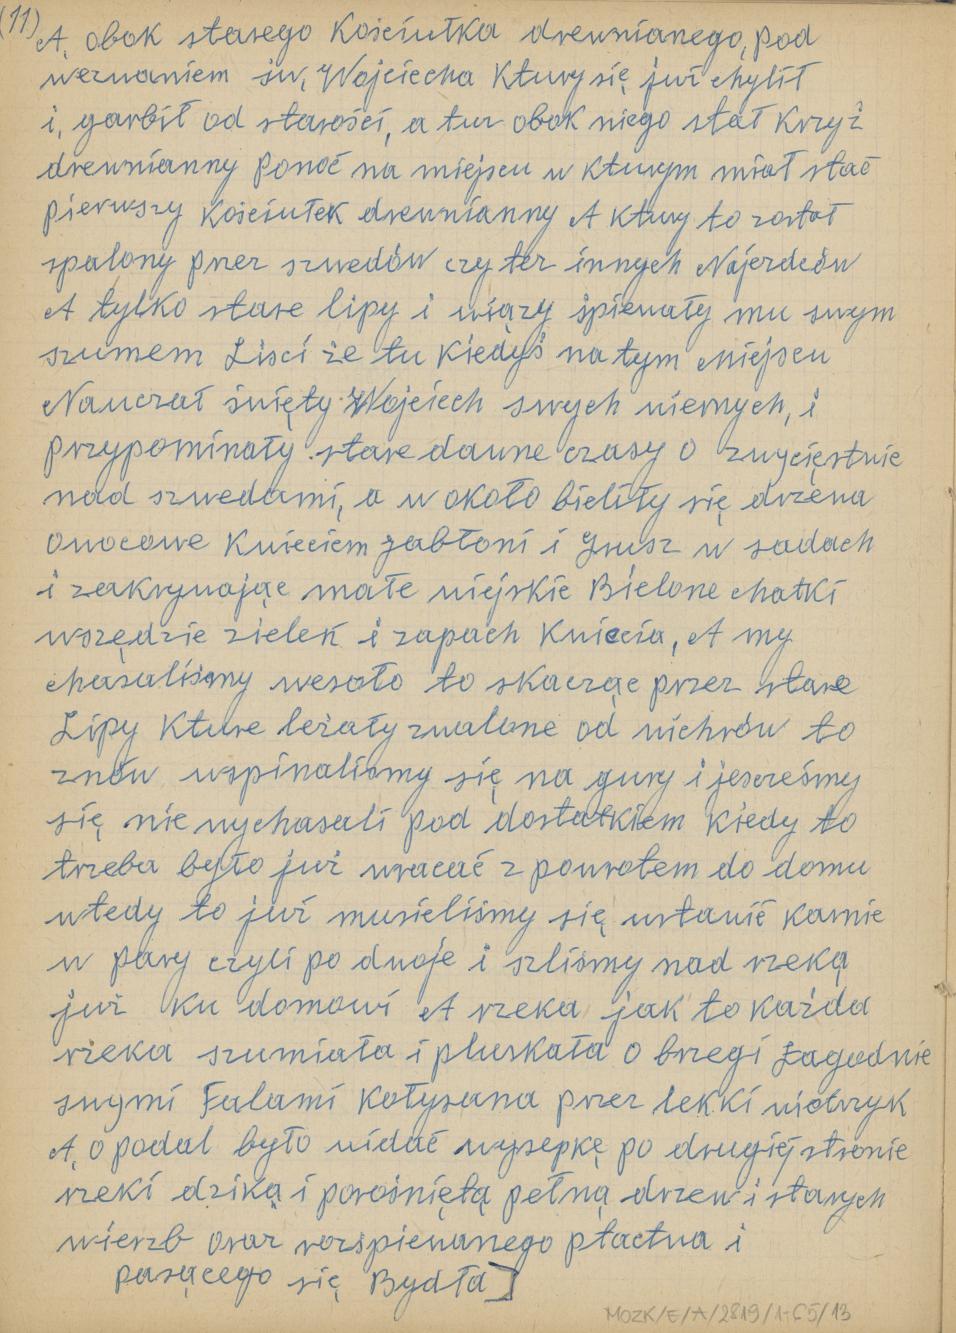 (11)
A, obok starego Kościułka drewnianego, pod
wezwaniem św, Wojciecha Ktury się już chylił
i, garbił od starości, a tuz obok niego stał Krzyż
drewnianny Ponoć na miejscu w kturym miał stać
pierwszy Kościułek drewnianny A ktury to został
spalony przez szwedów czy tez innych Najezdców
A tylko stare lipy i wiązy śpiewały mu swym
szumem Lisci że tu Kiedyś na tym miejscu
Nauczał święty Wojciech swych wiernych, i
przypominały stare dawne czasy o zwycięstwie
nad szwedami, a w około bieliły się drzewa
owocowe Kwieciem jabłoni i Grusz w sadach
i zakrywając małe wiejskie Bielone chatki
wszędzie zieleń i zapach Kwiecia, A my
chasaliśmy wesoło to skacząc przez stare
Lipy Kture leżały zwalone od wichrów to
znów wspinalismy się na gury i jeszcześmy
się nie wychasali pod dostatkiem Kiedy to
trzeba było już wracać z powrotem do domu
wtedy to już musieliśmy się ustawić karnie
w pary czyli po dwoje i szliśmy nad rzeką
już ku domowi A rzeka jak to każda
rzeka szumiała i pluskała o brzegi Łagodnie
swymi Falami Kołysana przez lekki wietrzyk
A, opodal było widać wysepkę po drugiej stronie
rzeki dziką i porośniętą pełną drzew i starych
wierzb oraz rozśpiewanego ptactwa i
pasącego się Bydła]
MOZK/E/A/2819/1-65/13